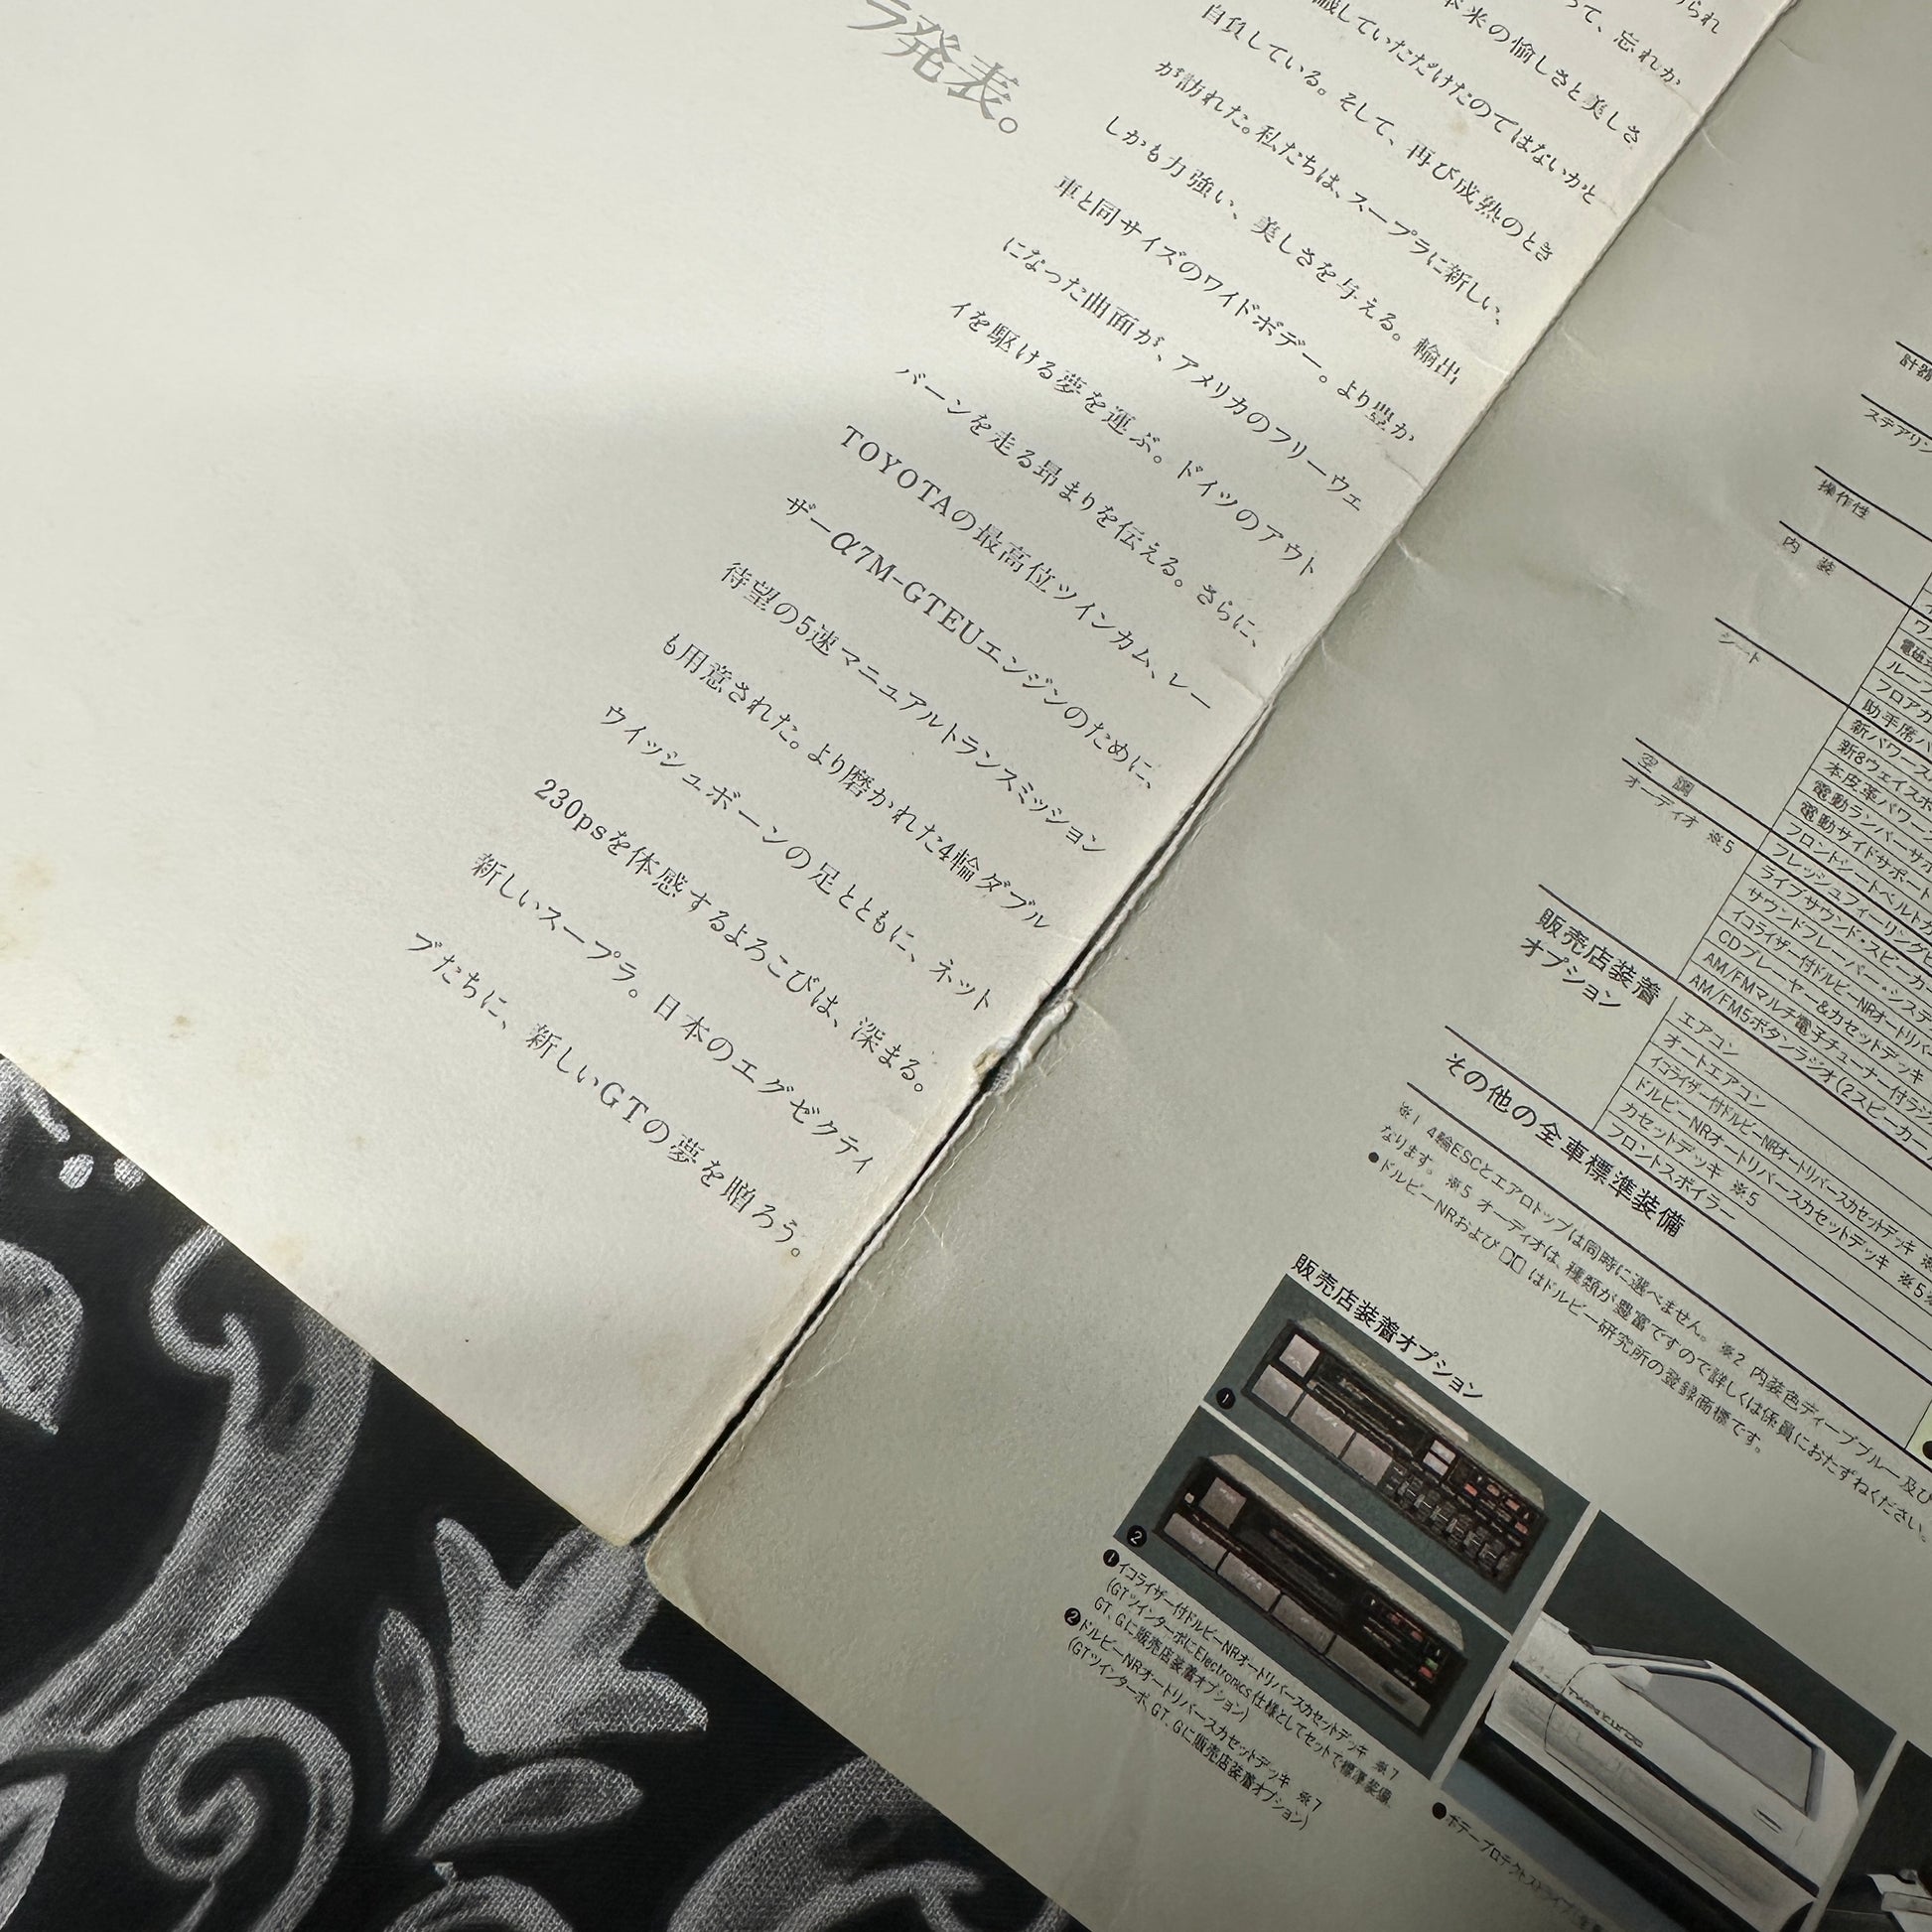 ラ発表。
られ
って、忘れか
本来の愉しさと美しさ
識していただけたのではないかと
自負している。そして、再び成熟のとき
が訪れた。私たちは、スープラに新しい、
しかも力強い、美しさを与える。輸出
車と同サイズのワイドボデー。より豊か
になった曲面が、アメリカのフリーウェ
イを駆ける夢を運ぶ。ドイツのアウト
バーンを走る昂まりを伝える。さらに、
TOYOTAの最高位ツインカム、レー
ザーα7M-GTEUエンジンのために、
待望の5速マニュアルトランスミッション
も用意された。より磨かれた4輪ダブル
ウイッシュボーンの足とともに、ネット
230psを体感するよろこびは、深まる。
新しいスープラ。日本のエグゼクティ
ブたちに、新しいGTの夢を贈ろう。
計器
ステアリン
操作性
内装
シート
空調
オーディオ ※5
電磁
ルーフ
フロアカ
助手席バ
新パワース
新8ウェイスポ
本皮革パワー
電動ランバーサポ
電動サイドサポート
フロントシートベルト
フレッシュフィーリング
ライブサウンド・スピーカー
サウンドフレーバー・システ
イコライザー付ドルビーNRオートリバー
CDプレーヤー&カセットデッキ
AM/FMマルチ電子チューナー付ラジ
AM/FM5ボタンラジオ(2スピーカー
販売店装着
オプション
エアコン
オートエアコン
イコライザー付ドルビーNRオートリバースカセットデッキ
ドルビーNRオートリバースカセットデッキ ※5
カセットデッキ ※5
フロントスポイラー
その他の全車標準装備
※1 4輪ESCとエアロトップは同時に選べません。 ※2 内装色ディープブルー及び
なります。 ※5 オーディオは、種類が豊富ですので詳しくは係員におたずねください。
●ドルビーNRおよび □□ はドルビー研究所の登録商標です。
販売店装着オプション
❶
❷
❶イコライザー付ドルビーNRオートリバースカセットデッキ ※7
(GTツインターボにElectronics仕様としてセットで標準装備、
GT、Gに販売店装着オプション)
❷ドルビーNRオートリバースカセットデッキ ※7
(GTツインターボ、GT、Gに販売店装着オプション)
TWINCAM
●ボデープロテクトストライプ